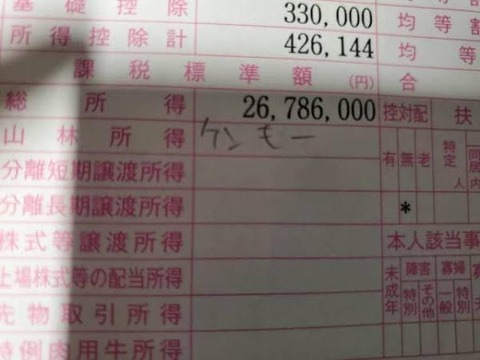 基礎控除 330,000 均等割
所得控除計 426,144 均等
課税標準額 (円) 合
総所得 26,786,000 控対配 扶
山林所得 ケンモー 有 無 老 特定 人 同居
分離短期譲渡所得
分離長期譲渡所得 *
株式等譲渡所得 本人該当事
上場株式等の配当所得 未成年 障害 特別 その他 寡婦 一般 特別 寡
先物取引所得
特例肉用牛所得